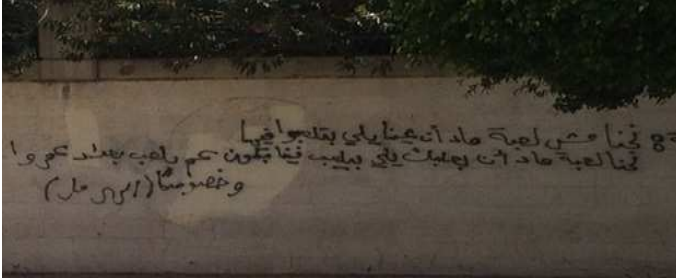 نحنا مش لعبة ماد أن عينا يلي بتلعبوا فيها
نحنا لعبة ماد أن بعلبك يلي بيلعب فينا بكون عم يلعب بعداد عمروا
وخصوصًا (الهرمل)